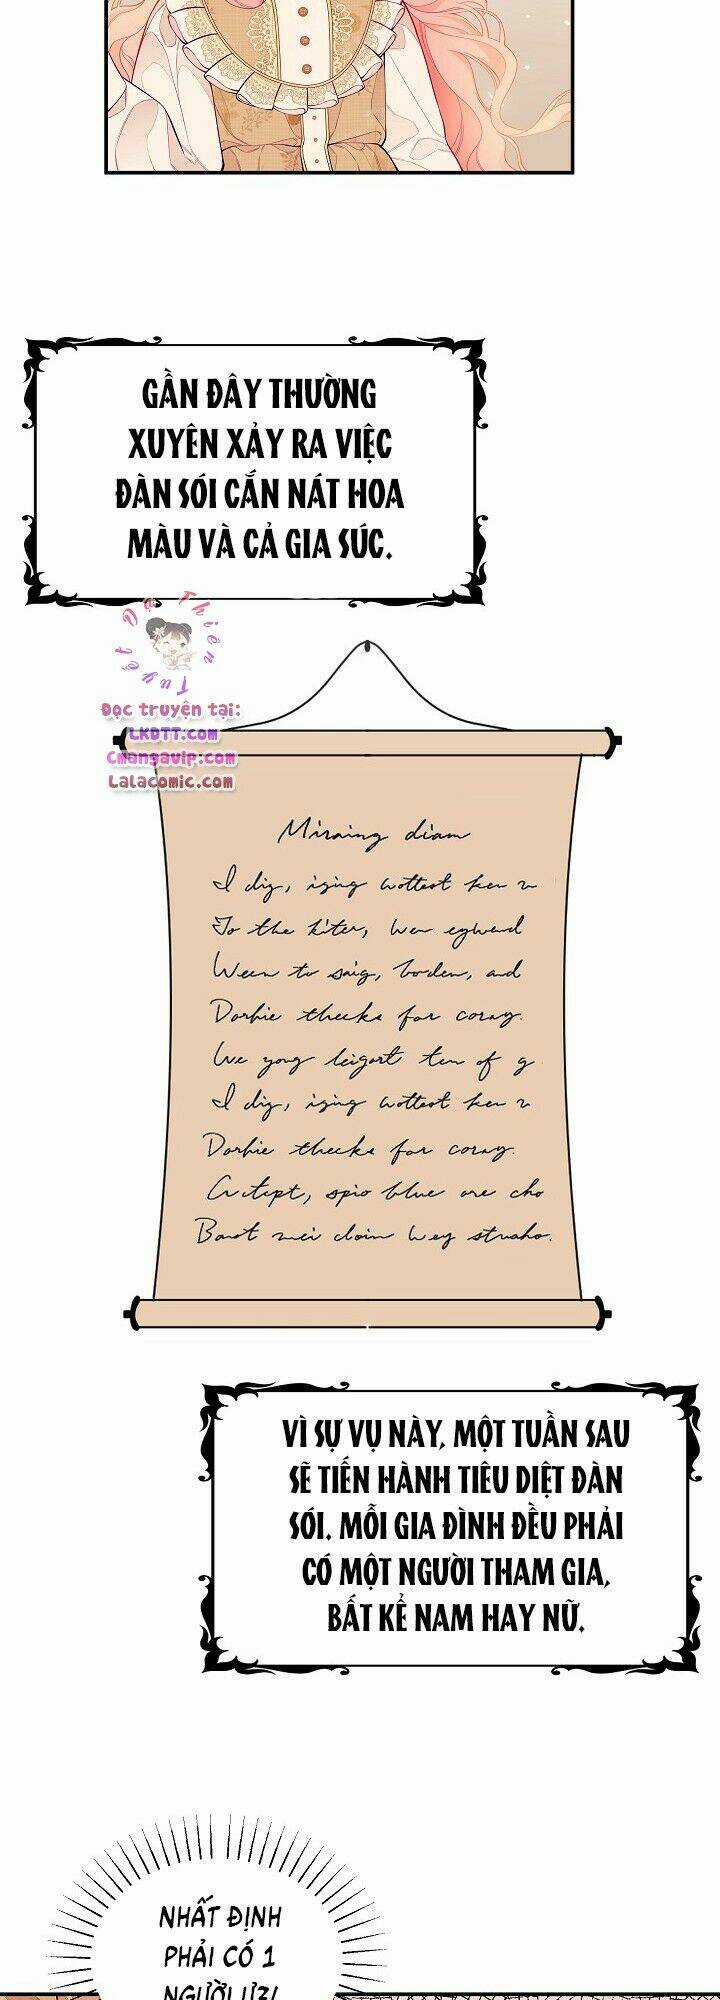 GẦN ĐÂY THƯỜNG
XUYÊN XẢY RA VIỆC
ĐÀN SÓI CẮN NÁT HOA
MÀU VÀ CẢ GIA SÚC.
Tuyết Dạ Thiên
Đọc truyện tại:
LKDTT.com
Cmangavip.com
Lalacomic.com
Miraing diam
I dig, ising wottest ken
To the kiter, Wen egwerd
Ween to saig, boden, and
Dorhie thecks for coray.
We yong leigort ten of g
I dig, ising wottest ken
Dorhie thecks for coray.
spio blue are cho
mei doin wey struaho.
VÌ SỰ VỤ NÀY, MỘT TUẦN SAU
SẼ TIẾN HÀNH TIÊU DIỆT ĐÀN
SÓI. MỖI GIA ĐÌNH ĐỀU PHẢI
CÓ MỘT NGƯỜI THAM GIA,
BẤT KỂ NAM HAY NỮ.
NHẤT ĐỊNH
PHẢI CÓ 1
NGƯỜI Ư?!